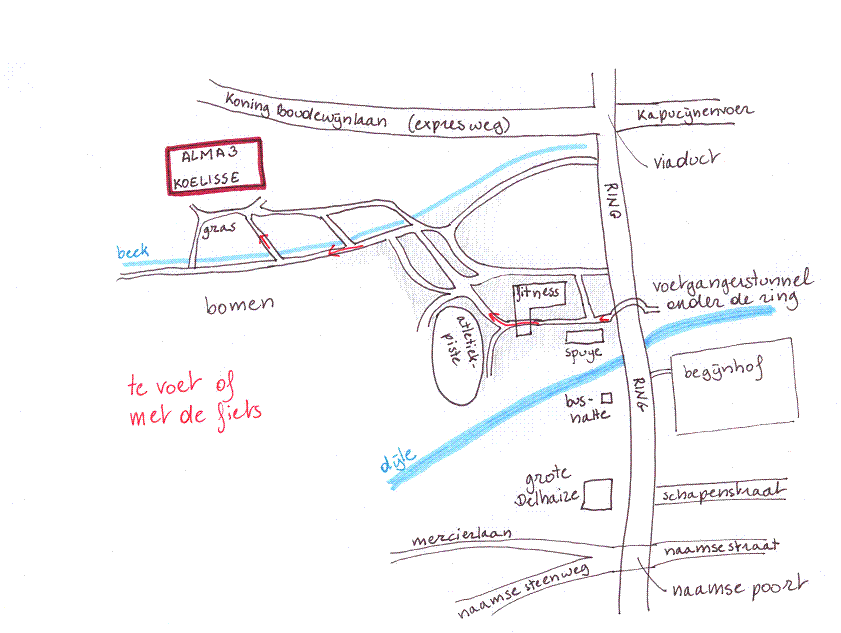 Koning Boudewijnlaan (expresweg)
Kapucijnenvoer
viaduct
ALMA 3
KOELISSE
RING
gras
beek
bomen
voetgangerstunnel
onder de ring
fitness
atletiek-
piste
spuye
te voet of
met de fiets
RING
begijnhof
bus-
halte
dijle
grote
Delhaize
schapenstraat
mercierlaan
naamsestraat
naamse steenweg
naamse poort